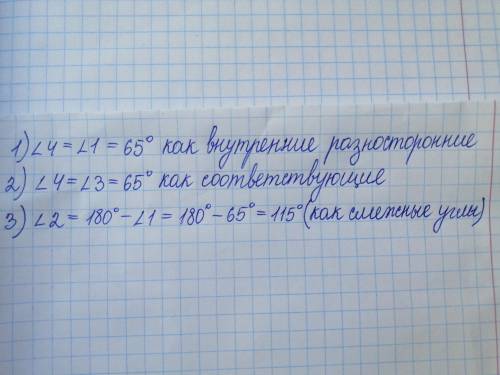 1) ∠4 = ∠1 = 65° как внутренние разносторонние
2) ∠4 = ∠3 = 65° как соответствующие
3) ∠2 = 180° - ∠1 = 180° - 65° = 115° (как смежные углы)